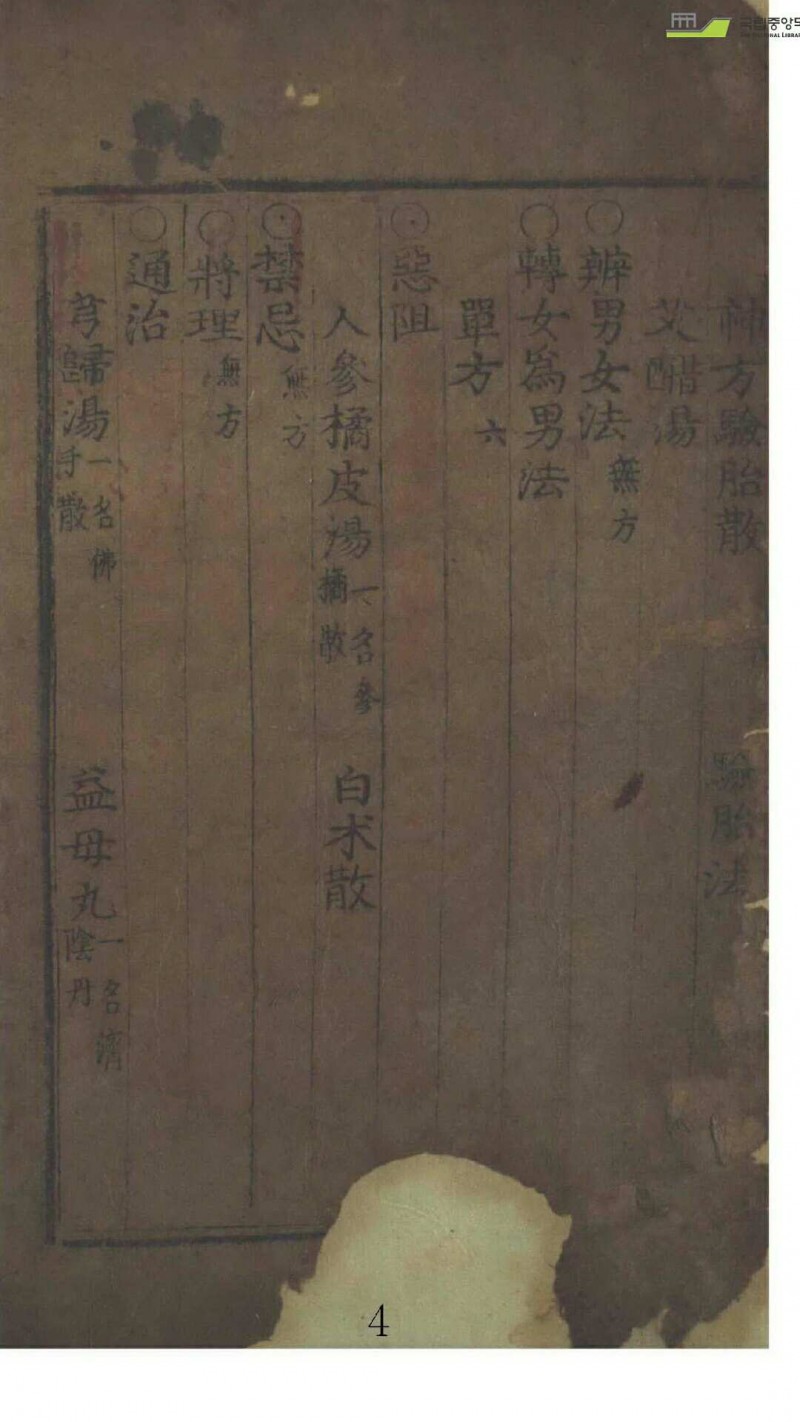 神方驗胎散 驗胎法
艾醋湯
○辨男女法 無方
○轉女爲男法
單方 六
○惡阻
人參橘皮湯 一名參橘散 白朮散
○禁忌 無方
○將理 無方
○通治
芎歸湯 一名佛手散 益母丸 一名濟陰丹
4
국립중앙